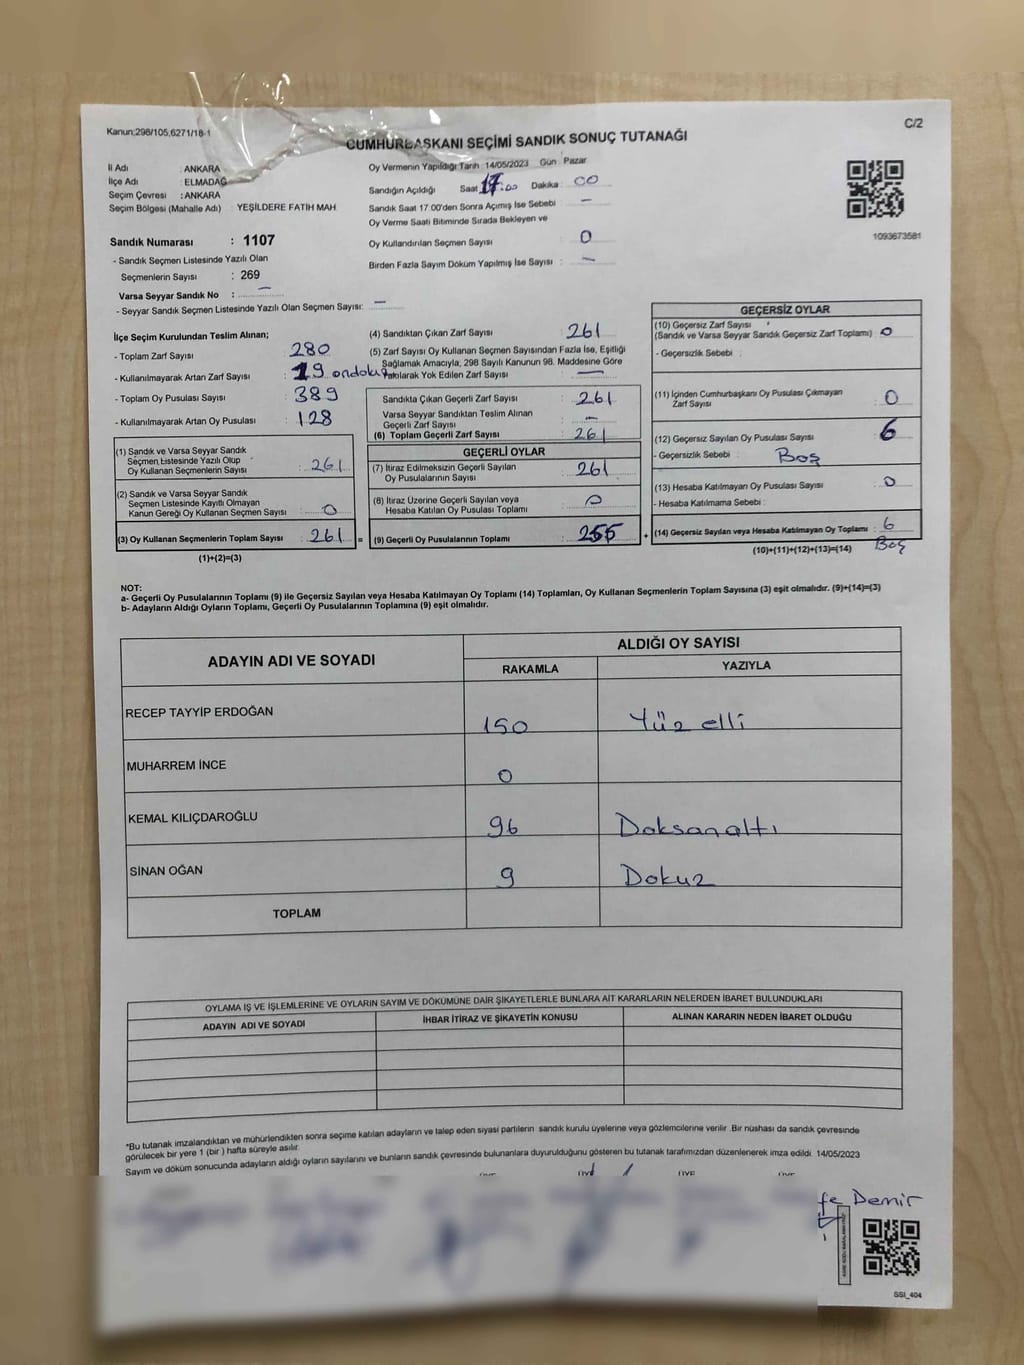 Kanun;298/105,6271/18-1
C/2
CUMHURBAŞKANI SEÇİMİ SANDIK SONUÇ TUTANAĞI
İl Adı : ANKARA
İlçe Adı : ELMADAĞ
Seçim Çevresi : ANKARA
Seçim Bölgesi (Mahalle Adı) : YEŞİLDERE FATİH MAH
Sandık Numarası : 1107
- Sandık Seçmen Listesinde Yazılı Olan
Seçmenlerin Sayısı : 269
Varsa Seyyar Sandık No : —
- Seyyar Sandık Seçmen Listesinde Yazılı Olan Seçmen Sayısı: —
Oy Vermenin Yapıldığı Tarih :14/05/2023 Gün : Pazar
Sandığın Açıldığı Saat 17:00 Dakika : 00
Sandık Saat 17.00'den Sonra Açımış İse Sebebi : —
Oy Verme Saati Bitiminde Sırada Bekleyen ve
Oy Kullandırılan Seçmen Sayısı : 0
Birden Fazla Sayım Döküm Yapılmış İse Sayısı : —
1093673581
İlçe Seçim Kurulundan Teslim Alınan;
- Toplam Zarf Sayısı : 280
- Kullanılmayarak Artan Zarf Sayısı : 19 ondokuz
- Toplam Oy Pusulası Sayısı : 389
- Kullanılmayarak Artan Oy Pusulası : 128
(1) Sandık ve Varsa Seyyar Sandık
Seçmen Listesinde Yazılı Olup
Oy Kullanan Seçmenlerin Sayısı : 261
(2) Sandık ve Varsa Seyyar Sandık
Seçmen Listesinde Kayıtlı Olmayan
Kanun Gereği Oy Kullanan Seçmen Sayısı : 0
(3) Oy Kullanan Seçmenlerin Toplam Sayısı : 261 =
(1)+(2)=(3)
(4) Sandıktan Çıkan Zarf Sayısı : 261
(5) Zarf Sayısı Oy Kullanan Seçmen Sayısından Fazla İse, Eşitliği
Sağlamak Amacıyla, 298 Sayılı Kanunun 98. Maddesine Göre
Yakılarak Yok Edilen Zarf Sayısı : —
Sandıkta Çıkan Geçerli Zarf Sayısı : 261
Varsa Seyyar Sandıktan Teslim Alınan
Geçerli Zarf Sayısı : —
(6) Toplam Geçerli Zarf Sayısı : 261
GEÇERLİ OYLAR
(7) İtiraz Edilmeksizin Geçerli Sayılan
Oy Pusulalarının Sayısı : 261
(8) İtiraz Üzerine Geçerli Sayılan veya
Hesaba Katılan Oy Pusulası Toplamı : 0
(9) Geçerli Oy Pusulalarının Toplamı : 255 +
GEÇERSİZ OYLAR
(10) Geçersiz Zarf Sayısı
(Sandık ve Varsa Seyyar Sandık Geçersiz Zarf Toplamı) : 0
- Geçersizlik Sebebi :
(11) İçinden Cumhurbaşkanı Oy Pusulası Çıkmayan
Zarf Sayısı : 0
(12) Geçersiz Sayılan Oy Pusulası Sayısı : 6
- Geçersizlik Sebebi : Boş
(13) Hesaba Katılmayan Oy Pusulası Sayısı : 0
- Hesaba Katılmama Sebebi :
(14) Geçersiz Sayılan veya Hesaba Katılmayan Oy Toplamı : 6
Boş
(10)+(11)+(12)+(13)=(14)
NOT:
a- Geçerli Oy Pusulalarının Toplamı (9) ile Geçersiz Sayılan veya Hesaba Katılmayan Oy Toplamı (14) Toplamları, Oy Kullanan Seçmenlerin Toplam Sayısına (3) eşit olmalıdır. (9)+(14)=(3)
b- Adayların Aldığı Oyların Toplamı, Geçerli Oy Pusulalarının Toplamına (9) eşit olmalıdır.
ADAYIN ADI VE SOYADI
ALDIĞI OY SAYISI
RAKAMLA YAZIYLA
RECEP TAYYİP ERDOĞAN 150 Yüz elli
MUHARREM İNCE 0
KEMAL KILIÇDAROĞLU 96 Doksanaltı
SİNAN OĞAN 9 Dokuz
TOPLAM
OYLAMA İŞ VE İŞLEMLERİNE VE OYLARIN SAYIM VE DÖKÜMÜNE DAİR ŞİKAYETLERLE BUNLARA AİT KARARLARIN NELERDEN İBARET BULUNDUKLARI
ADAYIN ADI VE SOYADI İHBAR İTİRAZ VE ŞİKAYETİN KONUSU ALINAN KARARIN NEDEN İBARET OLDUĞU
*Bu tutanak imzalandıktan ve mühürlendikten sonra seçime katılan adayların ve talep eden siyasi partilerin sandık kurulu üyelerine veya gözlemcilerine verilir .Bir nüshası da sandık çevresinde
görülecek bir yere 1 (bir ) hafta süreyle asılır.
Sayım ve döküm sonucunda adayların aldığı oyların sayılarını ve bunların sandık çevresinde bulunanlara duyurulduğunu gösteren bu tutanak tarafımızdan düzenlenerek imza edildi. 14/05/2023
Demir
SSI_404